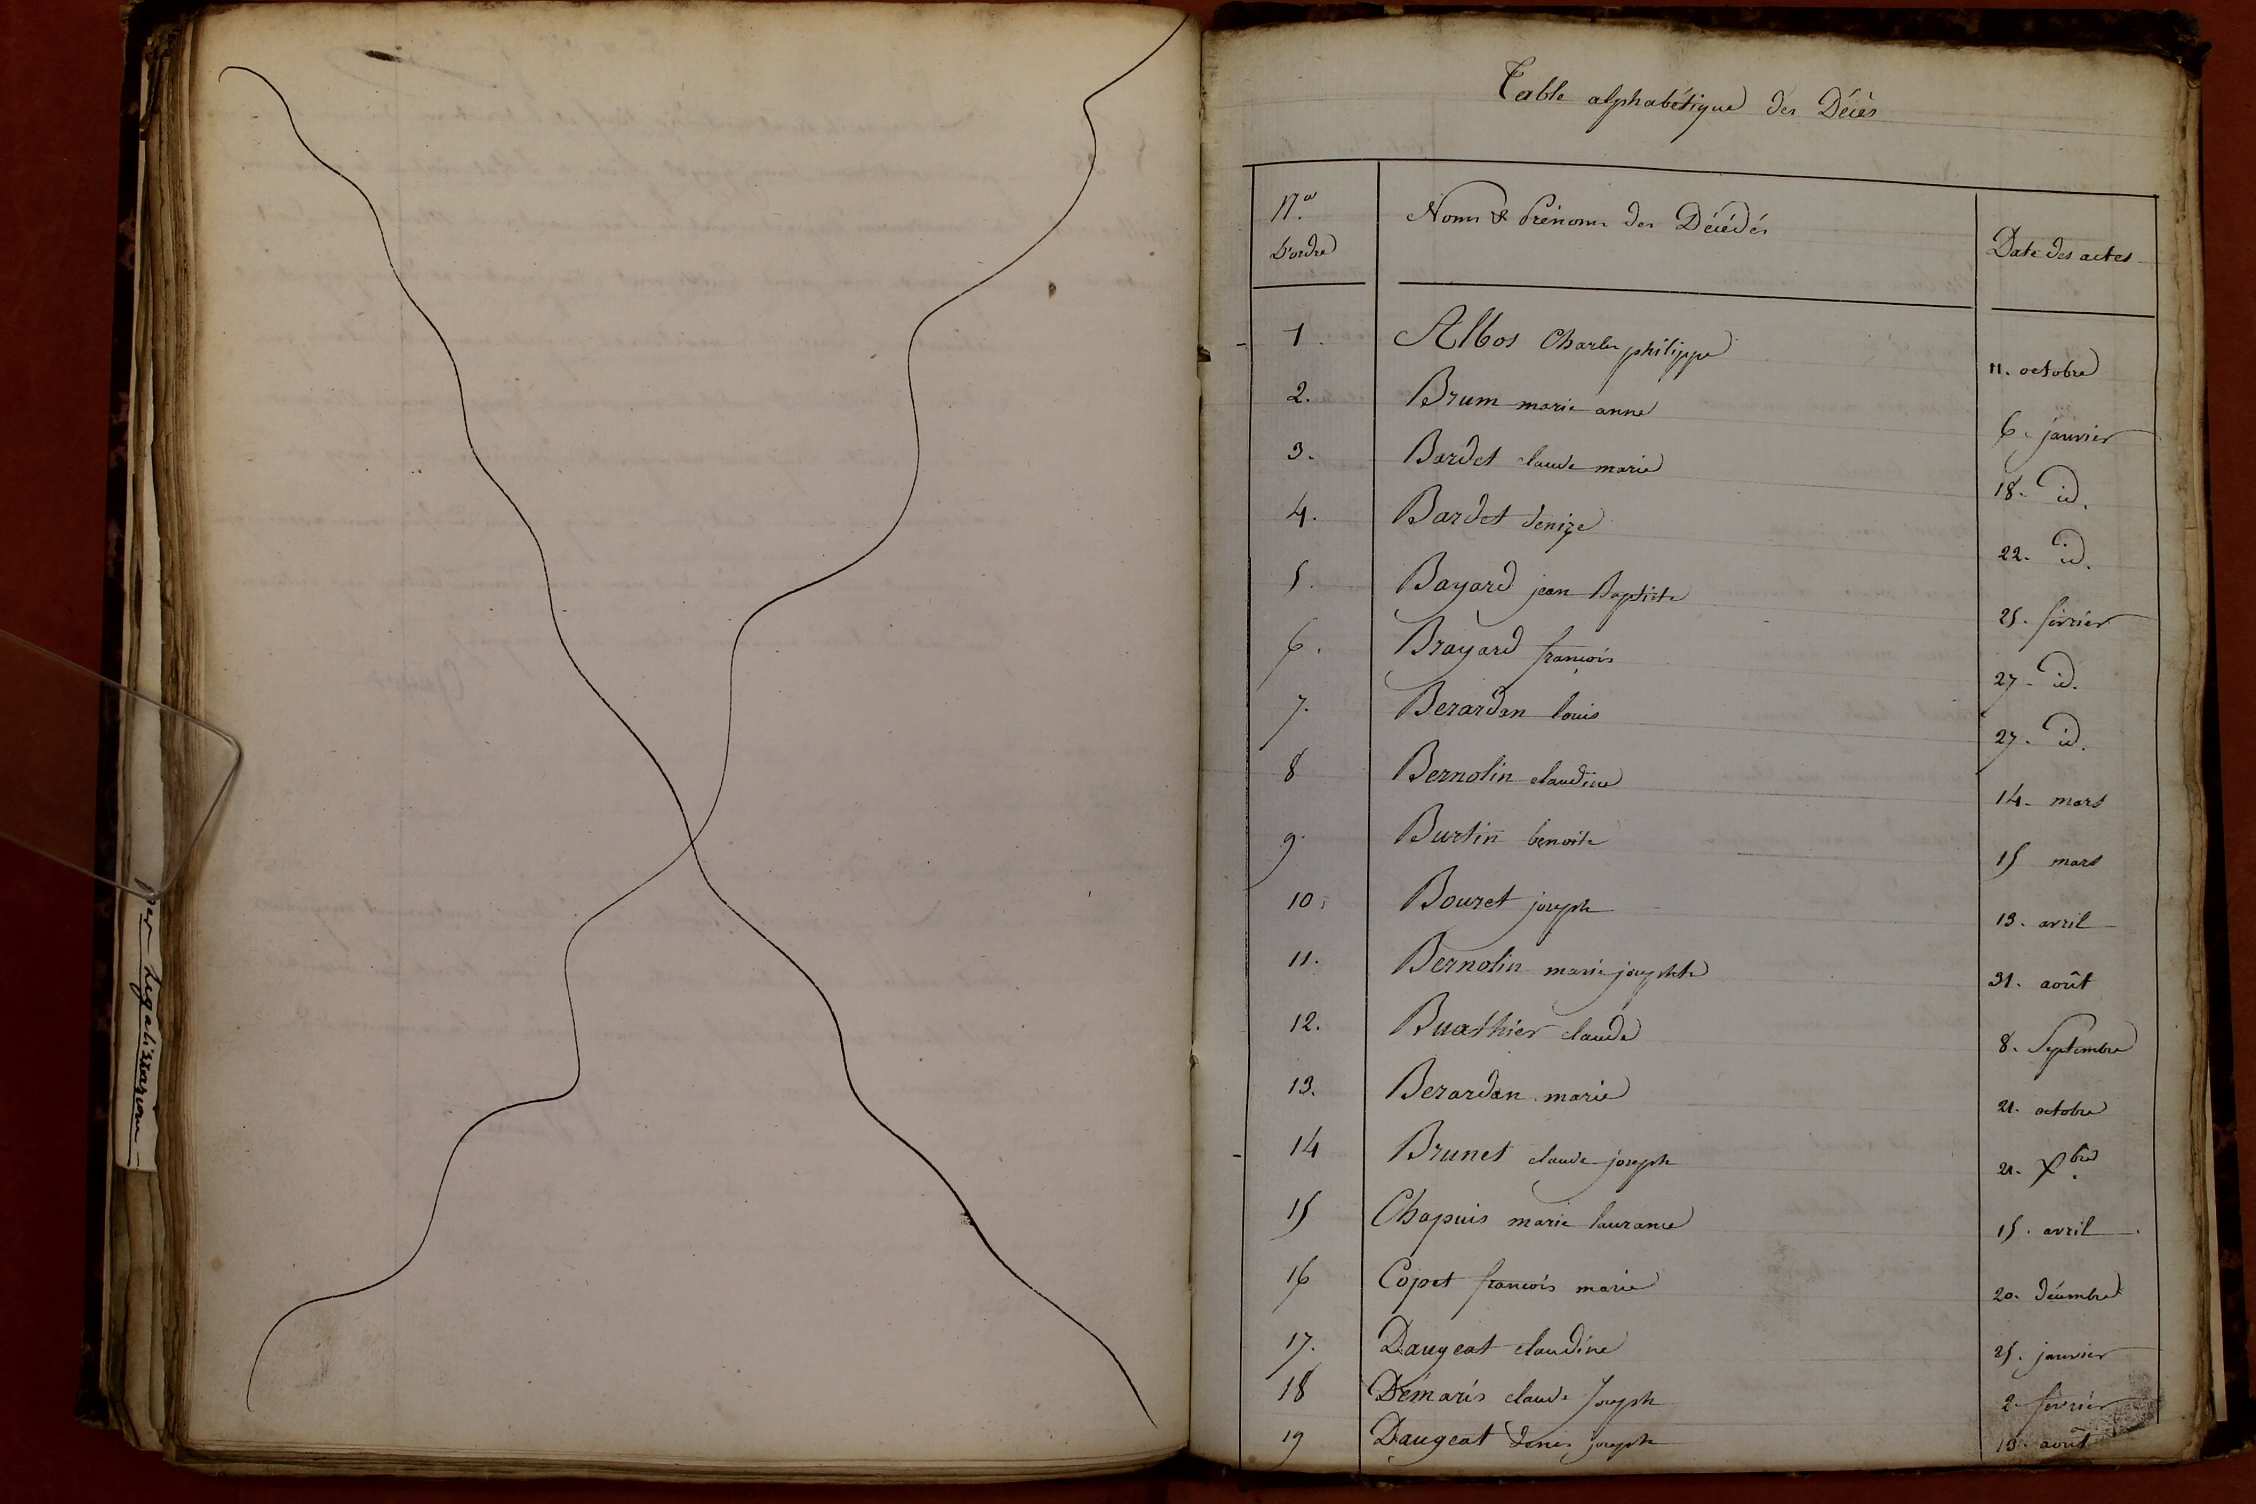 per Legalisation
Table alphabétique des Décès
N.os
D'ordre
Noms & Prénoms des Décédés
Date des actes
1. Albos Charles philippe 11. octobre
2. Brum marie anne 6. janvier
3. Bardet claude marie 18. id.
4. Bardet denize 22. id.
5. Bayard jean Baptiste 25. février
6. Brayard françois 27. id.
7. Berardan louis 27. id.
8 Bernolin claudine 14. mars
9. Burtin benoite 15 mars
10. Bouret joseph 13. avril
11. Bernolin marie josephte 31. août
12. Buathier claude 8. Septembre
13. Berardan marie 21. octobre
14 Brunet claude joseph 21. Xbre
15 Chapuis marie laurance 15. avril
16 Copet francois marie 20. décembre
17. Daugeat claudine 25. janvier
18 Démaris claude Joseph 2. février
19 Daugeat denis joseph 13. août